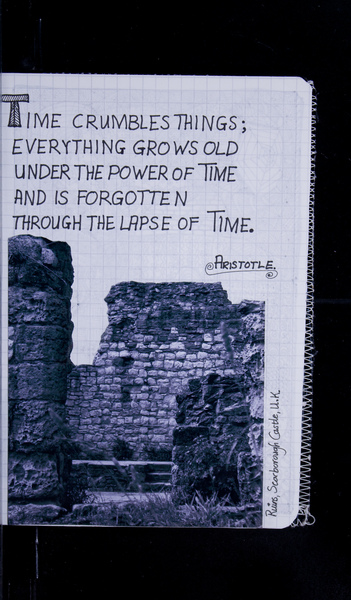 TIME CRUMBLES THINGS;
EVERYTHING GROWS OLD
UNDER THE POWER OF TIME
AND IS FORGOTTEN
THROUGH THE LAPSE OF TIME.
ARISTOTLE.
Ruins, Scarborough Castle, U.K